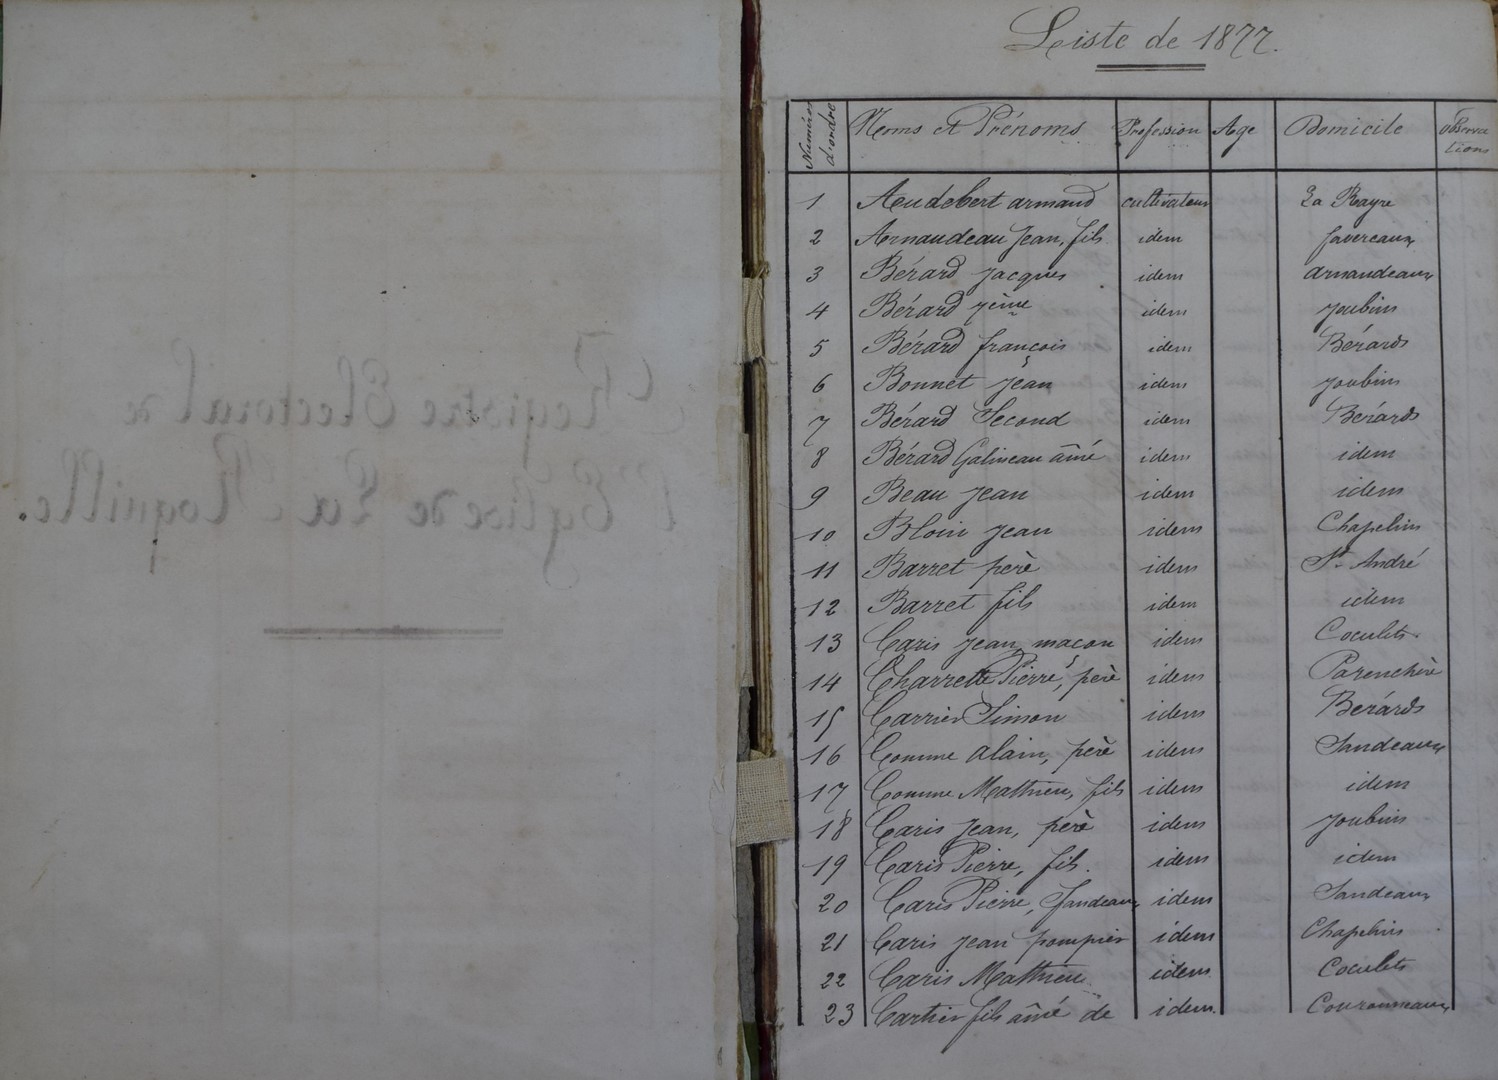 Registre Electoral de
l'Eglise de La Roquille.
Liste de 1877.
Numéros d'ordre Noms et Prénoms Profession Age Domicile Observations
1 Audebert armand cultivateur La Rayre
2 Arnaudeau Jean, fils idem favereaux
3 Bérard Jacques idem arnaudeaux
4 Bérard 7ème idem Joubins
5 Bérard françois idem Bérards
6 Bonnet Jean idem Joubins
7 Bérard Second idem Bérards
8 Bérard Galineau aîné idem idem
9 Beau Jean idem idem
10 Blouin Jean idem Chapelins
11 Barret père idem St André
12 Barret fils idem idem
13 Caris Jean, maçon idem Coculets
14 Charrette Pierre, père idem Parenchère
15 Carrier Simon idem Bérards
16 Comme alain, père idem Jandeaux
17 Comme Mathieu, fils idem idem
18 Caris Jean, père idem Joubins
19 Caris Pierre, fils. idem idem
20 Caris Pierre, Jandeaux idem Jandeaux
21 Caris Jean pompier idem Chapelins
22 Caris Mathieu idem Coculets
23 Cartier fils aîné de idem.